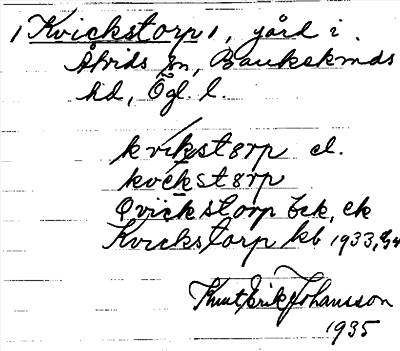 Kvickstorp, gård i
Åtvids sn, Bankekinds
hd, Ögl. l.
kvikstørp el.
kvekstørp
Qvickstorp Eck, ek
Kvickstorp kb 1933,
Knut Erik Johansson
1935